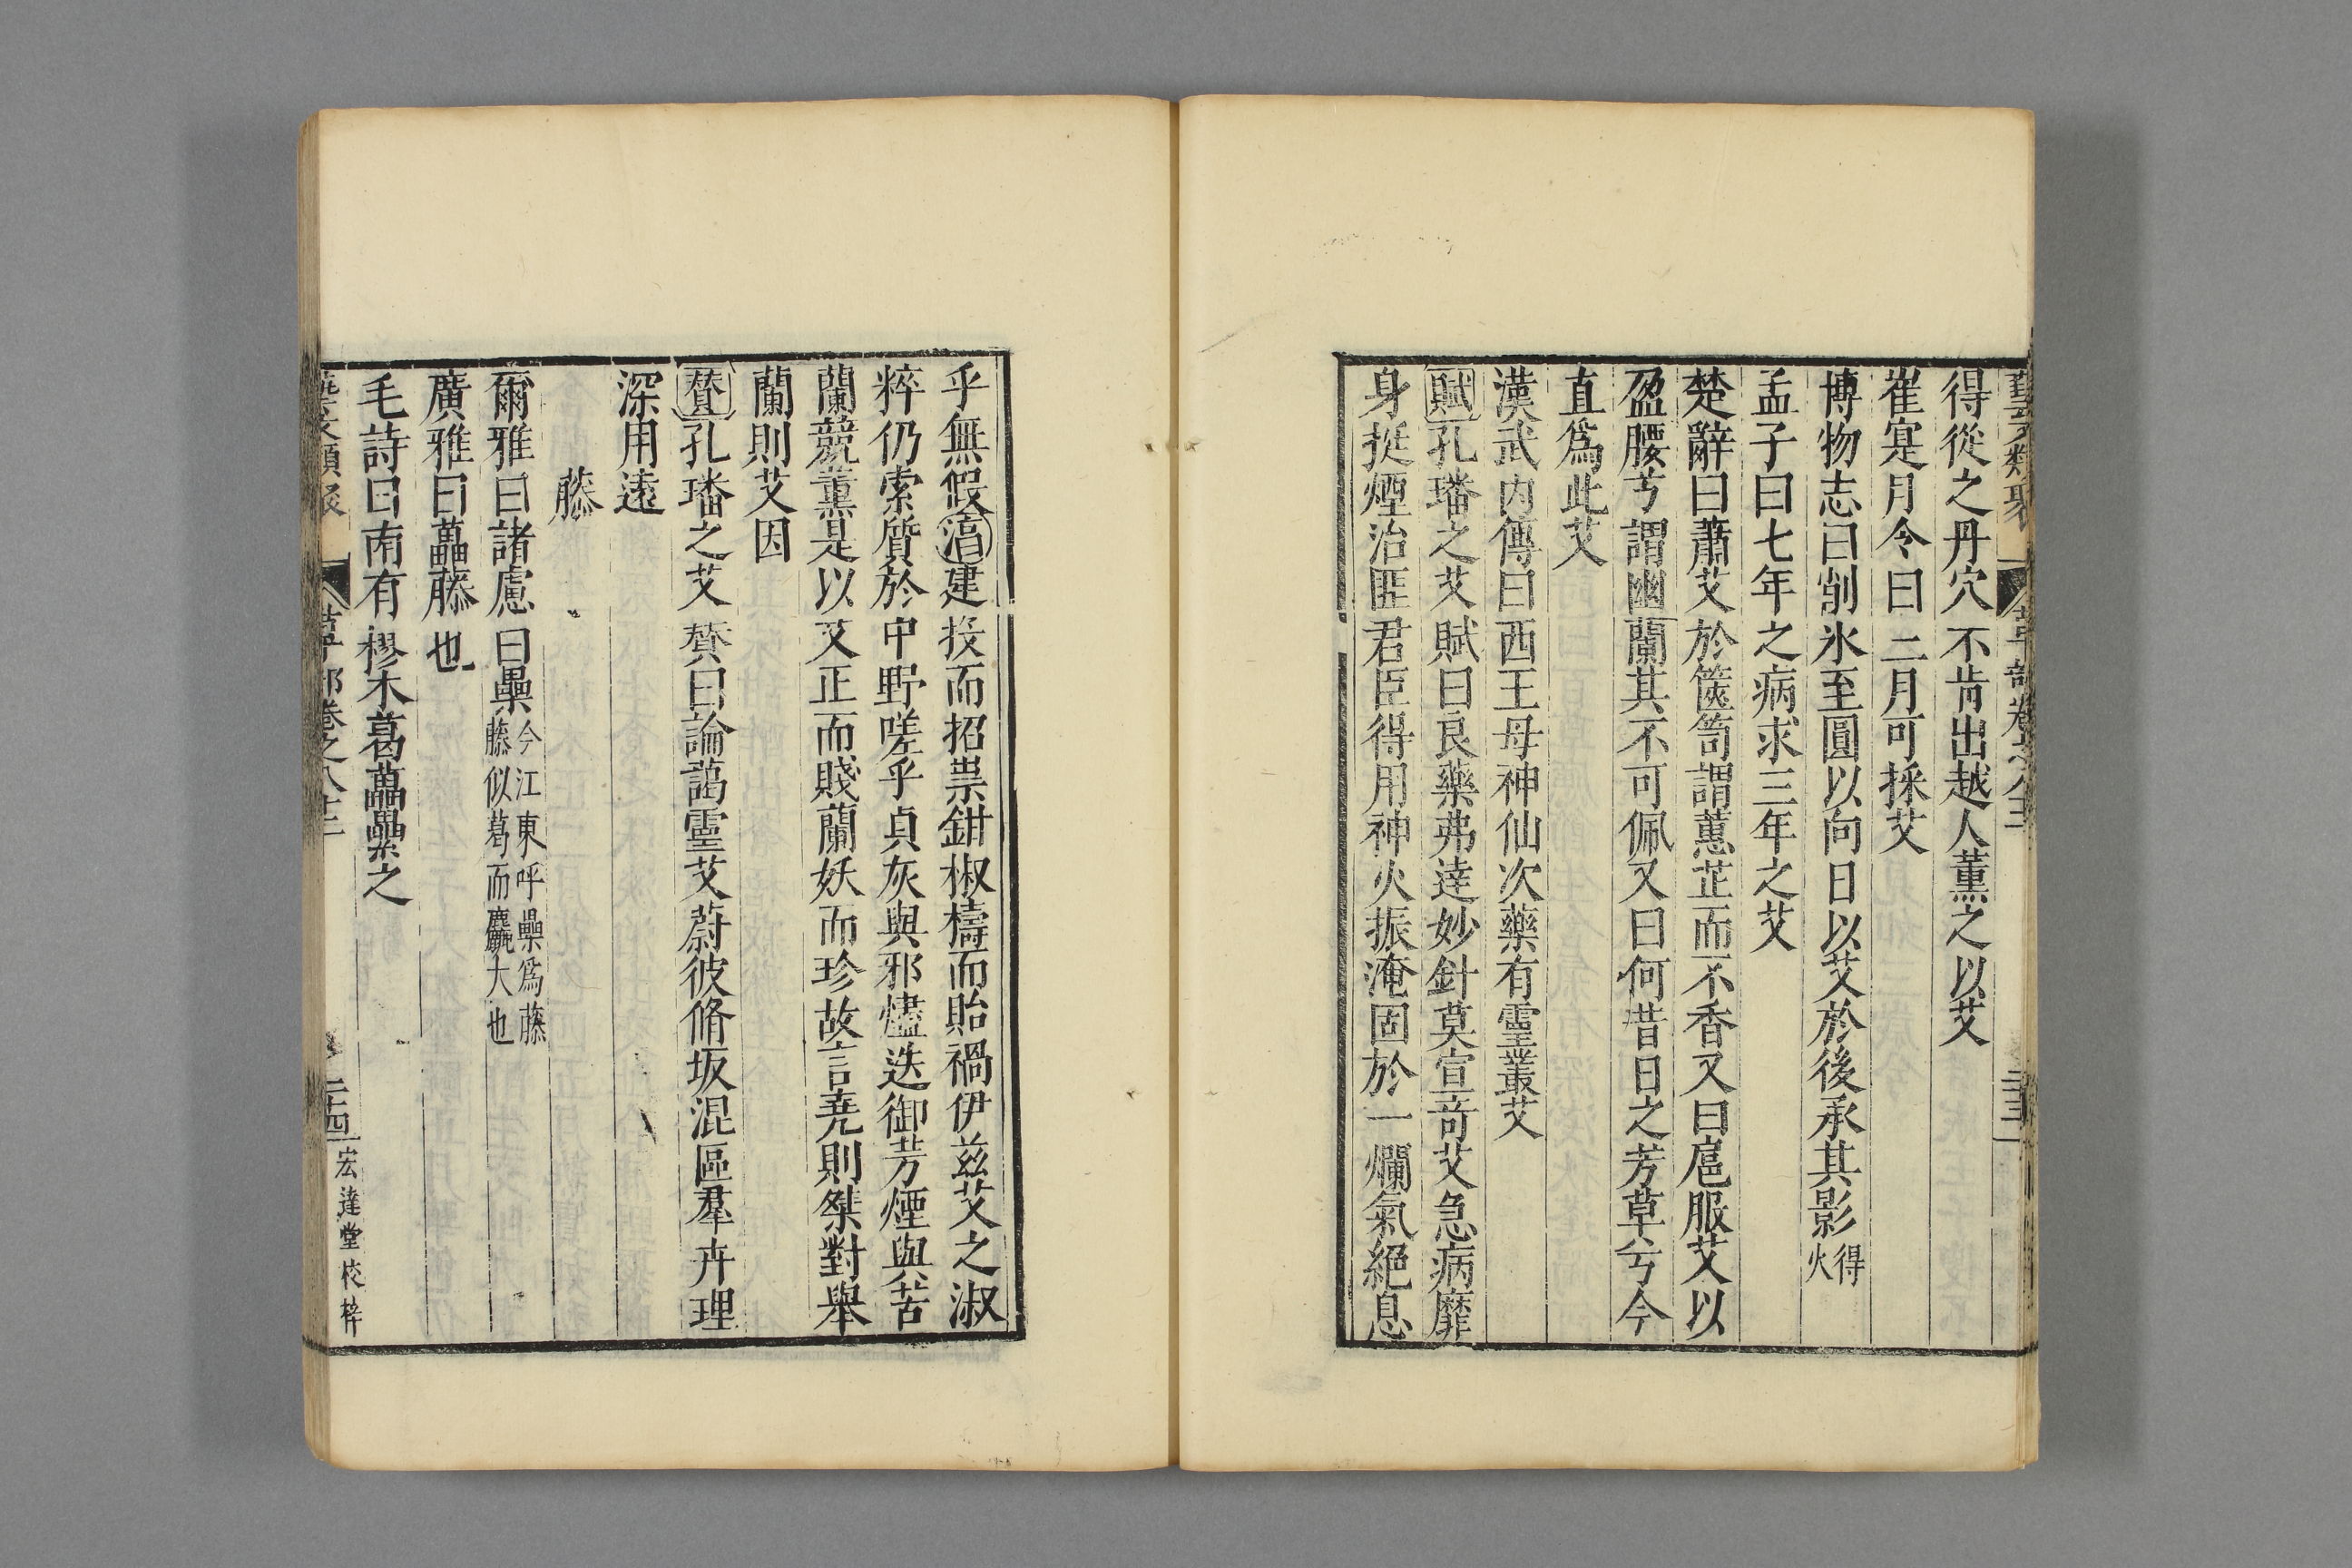 得從之丹穴不肯出越人薰之以艾
崔寔月令曰二月可採艾
博物志曰削氷至圓以向日以艾於後承其影得火
孟子曰七年之病求三年之艾
楚辭曰蕭艾於篋笥謂蕙芷而不香又曰扈服艾以
盈腰兮謂幽蘭其不可佩又曰何昔日之芳草兮今
直爲此艾
漢武内傳曰西王母神仙次藥有靈叢艾
賦孔璠之艾賦曰良藥弗達妙針莫宣奇艾急病靡
身挺煙治匪君臣得用神火振淹固於一爛氣絕息
乎無假滔建投而招祟鉗椒檮而貽禍伊兹艾之淑
粹仍索質於中野嗟乎貞灰與邪燼迭御芳煙與苦
蘭競薰是以艾正而賤蘭妖而珍故言堯則桀對舉
蘭則艾因
贊孔璠之艾贊曰論藹靈艾蔚彼脩坂混區羣卉理
深用遠
藤
爾雅曰諸慮曰櫐今江東呼櫐爲藤
藤似葛而麤大也
廣雅曰藟藤也
毛詩曰南有樛木葛藟櫐之
卷之八十二
二十四
宏達堂校梓